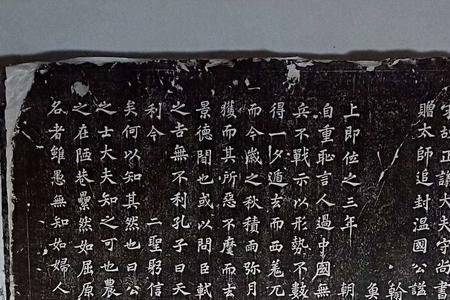 宋故正議大夫守尚書
贈太師追封溫國公諡
翰
上即位之三年 朝
自重恥言人過中國無
兵不戰示以形勢不數
得一夕遁去而西羌兀
一而今歲之秋積雨彌月
獲而其所惡不麾而去
景德間也或以問臣軾
之吉無不利孔子曰天
利今 二聖躬信
矣何以知其然也曰公
之士大夫知之可也農
之在陋巷纍然如屈原
名者雖愚無知如婦人